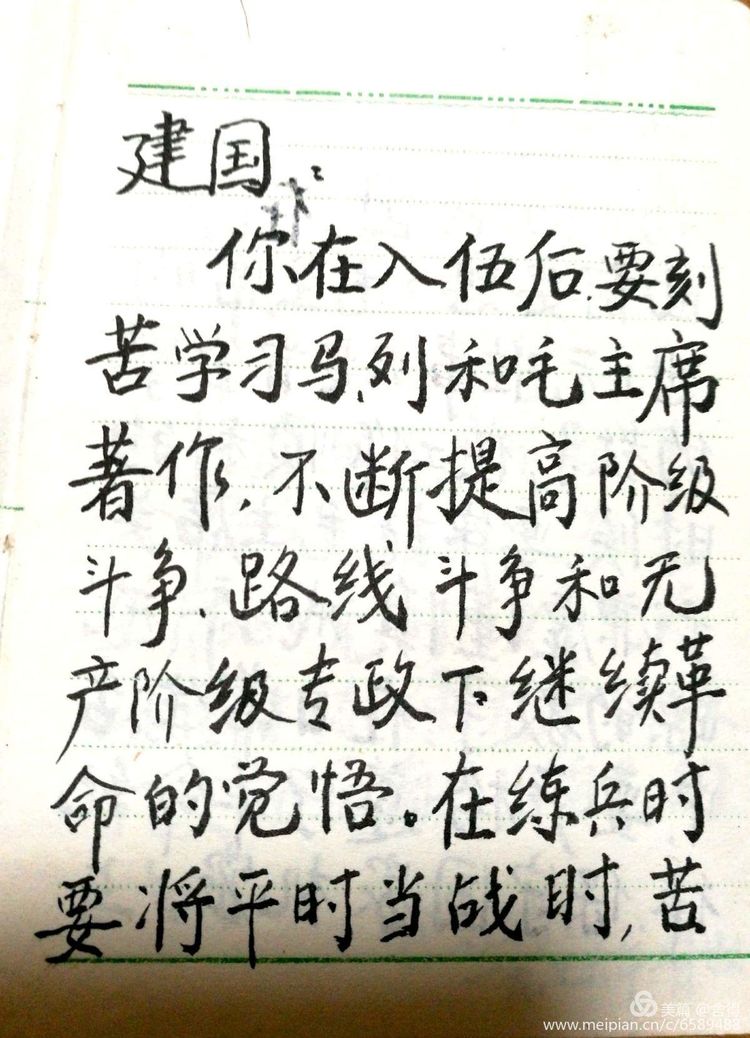 建国
你在入伍后,要刻
苦学习马、列和毛主席
著作,不断提高阶级
斗争、路线斗争和无
产阶级专政下继续革
命的觉悟。在练兵时
要将平时当战时,苦
美篇 @舍得
www.meipian.cn/c/6589488